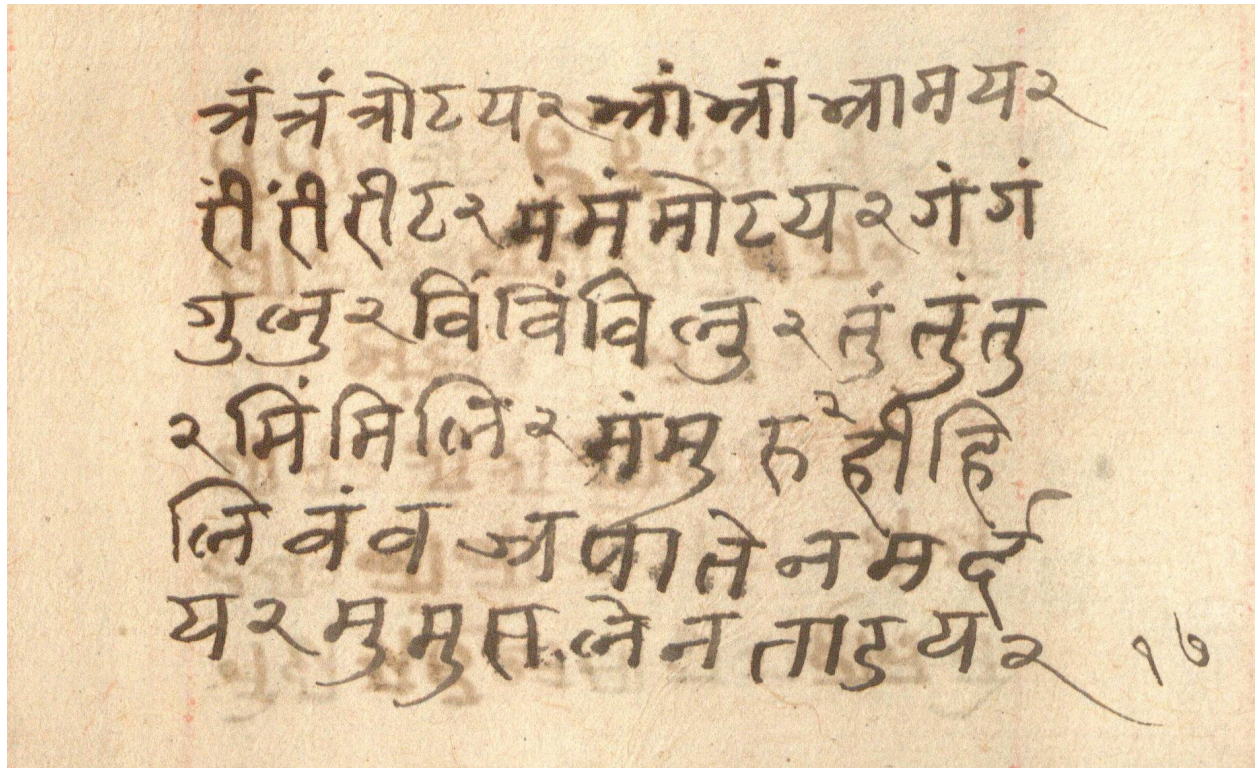 त्रं त्रं त्रोटय२ भ्रां भ्रां भ्रामय२
रीं रीं रीट२ मं मं मोटय२ गं गं
गुलु२ विं विं विलु२ तुं तुं तु
२ मिं मि लि२ मं मु रु२ हीं हि
लि वं व ज्र पा ते न म र्द
य२ मु मु स ले न ताडय२ १७